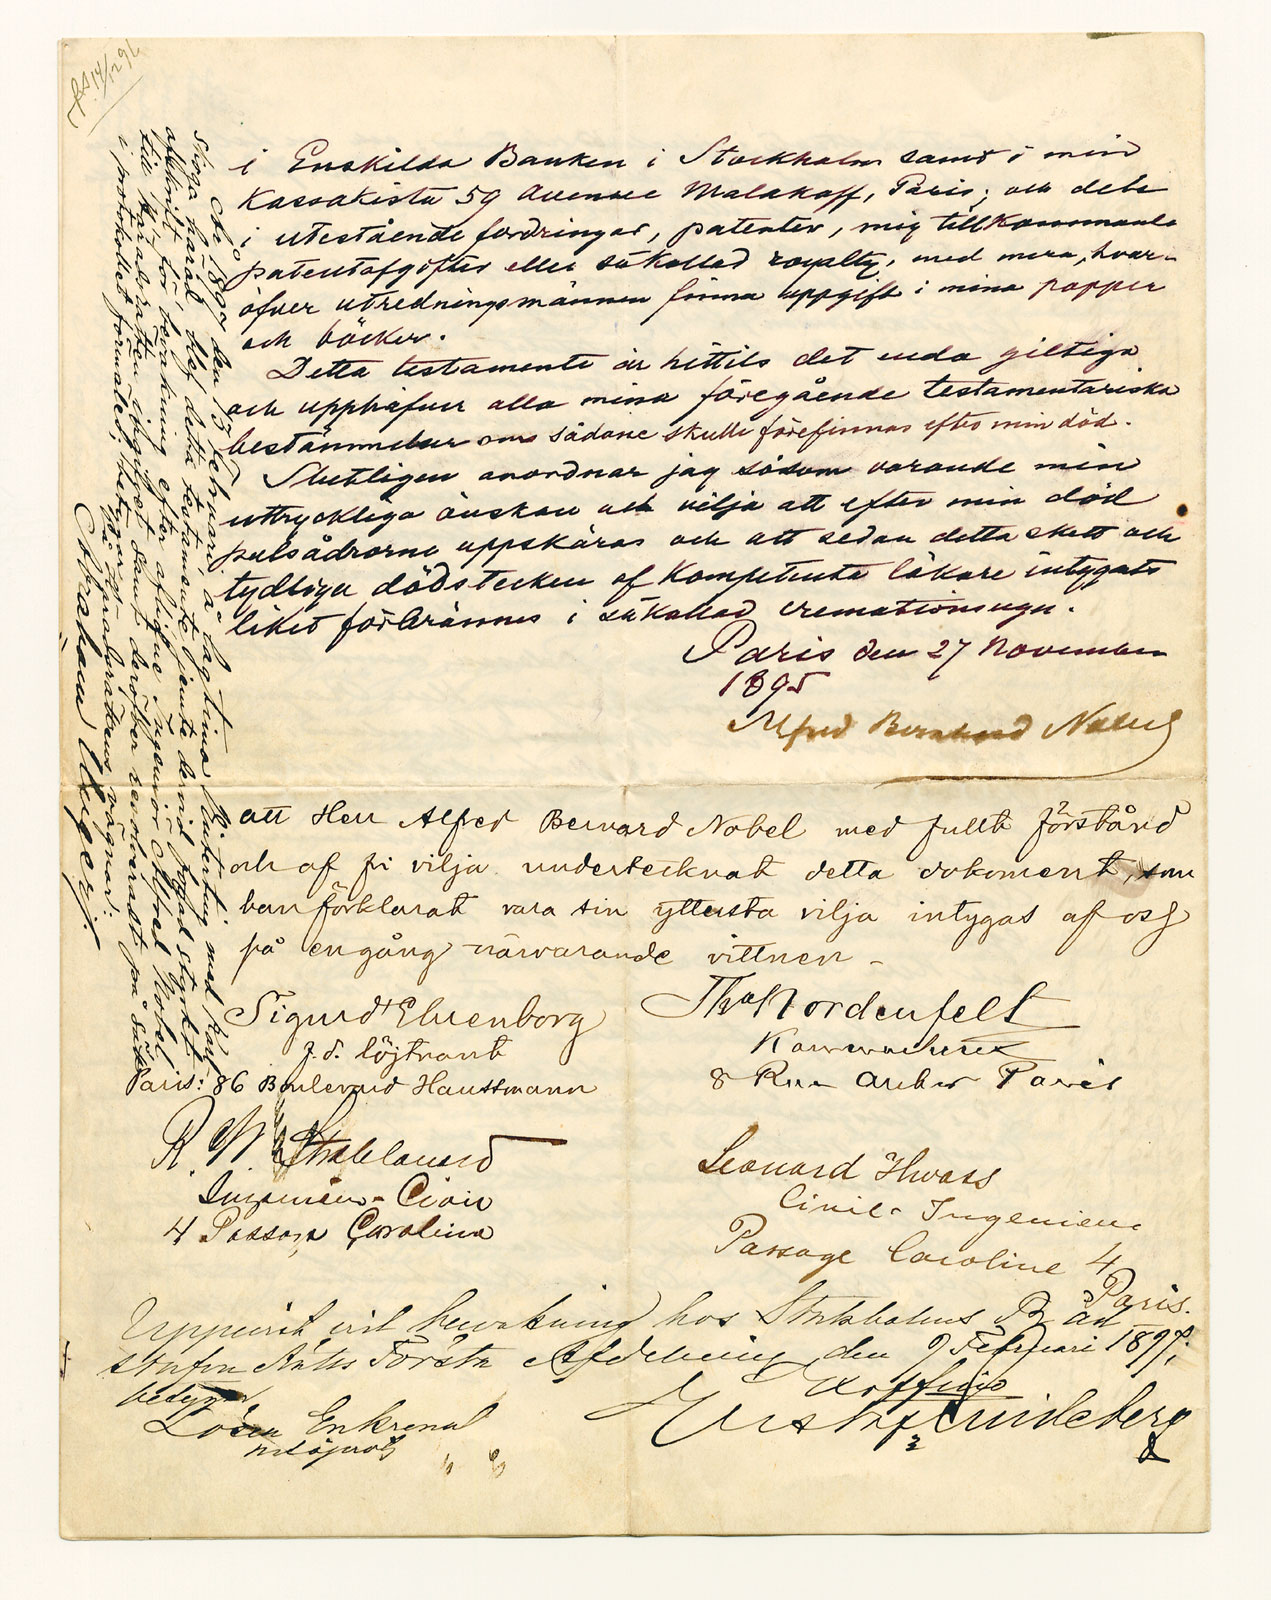 i Enskilda Banken i Stockholm samt i min
Kassakista 59 Avenue Malakoff, Paris; och dels
i utestående fordringar, patenter, mig tillkommande
patentafgifter eller såkallad royalty, med mera, hvar-
öfver utredningsmännen finna uppgift i mina papper
och böcker.
Detta testamente är hittils det enda giltiga
och upphäfver alla mina föregående testamentariska
bestämmelser om sådane skulle förefinnas efter min död.
Slutligen anordnar jag såsom varande min
uttryckliga önskan och vilja att efter min död
pulsådrorna uppskäras och att sedan detta skett och
tydliga dödstecken af kompetenta läkare intygats
liket förbrännes i såkallad cremationsugn.
Paris den 27 November
1895
Alfred Bernhard Nobel
att Herr Alfred Bernard Nobel med fullt förstånd
och af fri vilja undertecknat detta dokoment, som
han förklarat vara sin yttersta vilja intygas af oss
på engång närvarande vittnen -
Sigurd Ehrenborg
f.d. löjtnant
Paris: 86 Boulevard Haussmann
Ths Nordenfelt
8 Rue Auber Paris
R. W. Strehlenert
Ingenieur-Civil
4 Passage Caroline
Leonard Hwass
Civil-Ingeniör
Passage Caroline 4
Paris.
Uppvist vid bevakning hos Stockholms Råd
stufvu Rätts Första Afdelning den 9 Februari 1897;
betygar
Ex officio
År 1897 den 13 Februari, å lagtima Vintertinget med Karl-
skoga härad, blef detta testamente jemte dervid fogad styrkt
afskrift för bevakning efter aflidne Ingeniör Alfred Nobel
till Häradsrätten ingifvet samt deröfver resolveradt på sätt
i protokollet förmäles; betygar
På Häradsrättens vägnar:
Abraham Unger.